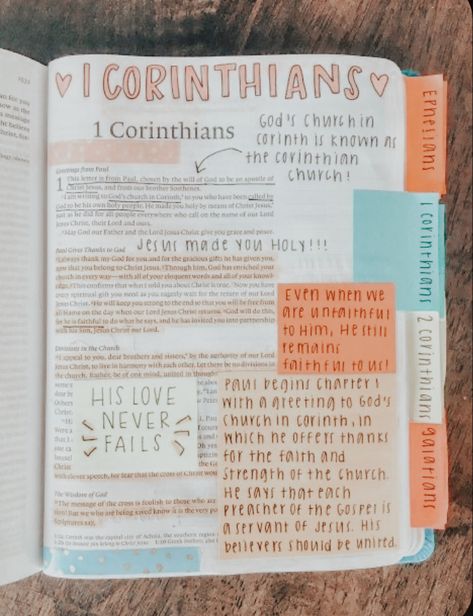 1 CORINTHIANS
1 Corinthians
GOD'S CHURCH IN
CORINTH IS KNOWN AS
THE CORINTHIAN
CHURCH!
Greetings from Paul
1 This letter is from Paul, chosen by the will of God to be an apostle of
Christ Jesus, and from our brother Sosthenes.
I am writing to God's church in Corinth, to you who have been called by
God to be his own holy people. He made you holy by means of Christ Jesus,
just as he did for all people everywhere who call on the name of our Lord
Jesus Christ, their Lord and ours.
May God our Father and the Lord Jesus Christ give you grace and peace.
Paul Gives Thanks to God
JESUS MADE YOU HOLY!!!
I always thank my God for you and for the gracious gifts he has given you,
now that you belong to Christ Jesus. Through him, God has enriched your
church in every way—with all of your eloquent words and all of your knowl-
edge. This confirms that what I told you about Christ is true. Now you have
every spiritual gift you need as you eagerly wait for the return of our Lord
Jesus Christ. He will keep you strong to the end so that you will be free from
all blame on the day when our Lord Jesus Christ returns. God will do this,
for he is faithful to do what he says, and he has invited you into partnership
with his Son, Jesus Christ our Lord.
EVEN WHEN WE
ARE UNFAITHFUL
TO HIM, HE STILL
REMAINS
FAITHFUL TO US!
Divisions in the Church
I appeal to you, dear brothers and sisters, by the authority of our Lord
Jesus Christ, to live in harmony with each other. Let there be no divisions in
the church. Rather, be of one mind, united in thought
HIS LOVE
NEVER
FAILS
PAUL BEGINS CHAPTER 1
WITH A GREETING TO GOD'S
CHURCH IN CORINTH, IN
WHICH HE OFFERS THANKS
FOR THE FAITH AND
STRENGTH OF THE CHURCH.
HE SAYS THAT EACH
PREACHER OF THE GOSPEL IS
A SERVANT OF JESUS. HIS
BELIEVERS SHOULD BE UNITED.
with clever speech, for fear that the cross of Christ wou
The Wisdom of God
The message of the cross is foolish to those who are
But we who are being saved know it is the very po
Scriptures say,
EPHESIANS
1 CORINTHIANS
2 CORINTHIANS
GALATIANS